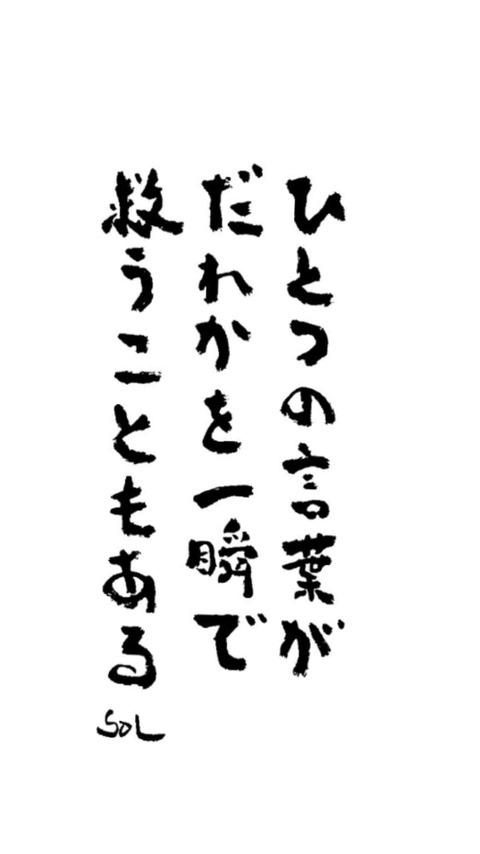 ひとつの言葉が
だれかを一瞬で
救うこともある
SOL